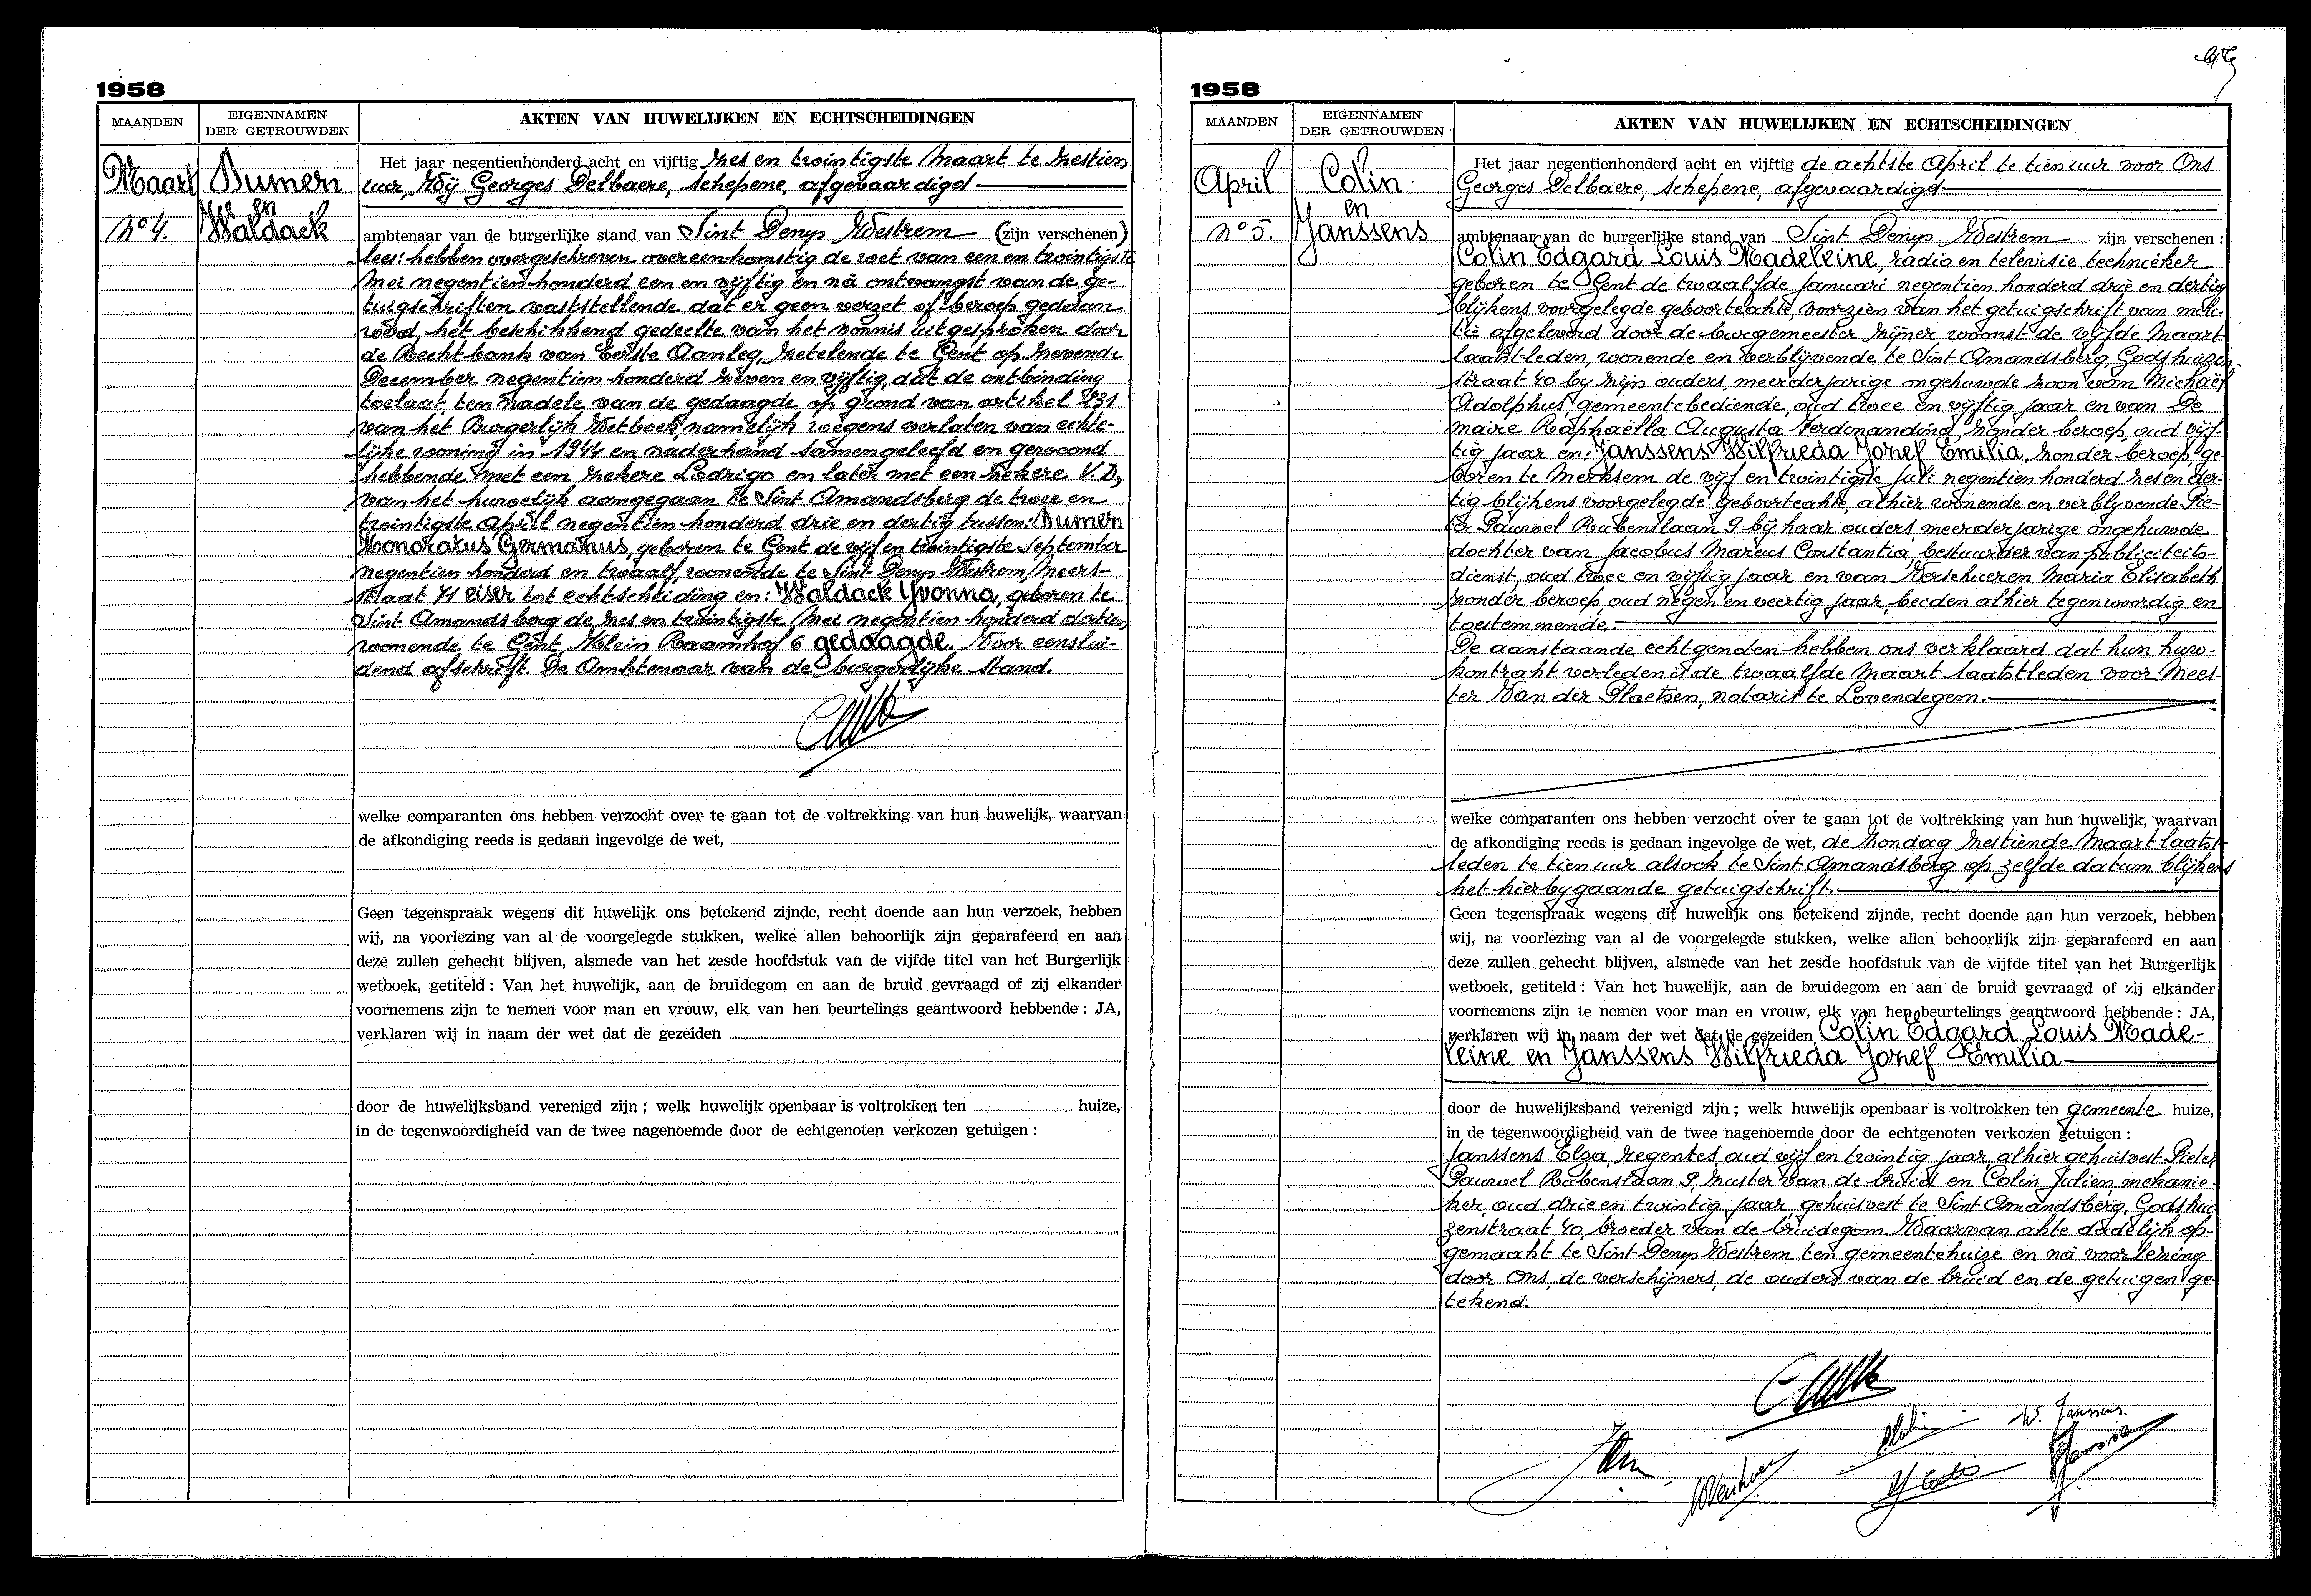 1958
MAANDEN
EIGENNAMEN
DER GETROUWDEN
AKTEN VAN HUWELIJKEN EN ECHTSCHEIDINGEN
Maart
No 4.
Dumern
en
Waldack
Het jaar negentienhonderd acht en vijftig zes en twintigste Maart te zestien
uur, Wij Georges Delbaere, schepene, afgevaardigd
ambtenaar van de burgerlijke stand van Sint Denys Westrem (zijn verschenen)
lees: hebben overgeschreven overeenkomstig de wet van een en twintigste
Mei negentien honderd een en vijftig en nà ontvangst van de ge-
tuigschriften vaststellende dat er geen verzet of beroep gedaan
werd, het beschikkend gedeelte van het vonnis uitgesproken door
de Rechtbank van Eerste Aanleg, zetelende te Gent op zevende
December negentien honderd zeven en vijftig, dat de ontbinding
toelaat ten nadele van de gedaagde op grond van artikel 231
van het Burgerlijk Wetboek, namelijk wegens verlaten van echte-
lijke woning in 1944 en naderhand samengeleefd en gewoond
hebbende met een zekere Lodrigo en later met een zekere V.D.,
van het huwelijk aangegaan te Sint Amandsberg de twee en
twintigste April negentien honderd drie en dertig tussen: Dumern
Honoratus Germanus, geboren te Gent de vijf en twintigste September
negentien honderd en twaalf, wonende te Sint Denys Westrem,
straat 71 eiser tot echtscheiding en: Waldack Yvonna, geboren te
Sint Amandsberg de zes en twintigste Mei negentien honderd dertien
wonende te Gent, Klein Raamhof 6 gedaagde. Voor eenslui-
dend afschrift. De Ambtenaar van de burgerlijke stand.
welke comparanten ons hebben verzocht over te gaan tot de voltrekking van hun huwelijk, waarvan
de afkondiging reeds is gedaan ingevolge de wet,
Geen tegenspraak wegens dit huwelijk ons betekend zijnde, recht doende aan hun verzoek, hebben
wij, na voorlezing van al de voorgelegde stukken, welke allen behoorlijk zijn geparafeerd en aan
deze zullen gehecht blijven, alsmede van het zesde hoofdstuk van de vijfde titel van het Burgerlijk
wetboek, getiteld : Van het huwelijk, aan de bruidegom en aan de bruid gevraagd of zij elkander
voornemens zijn te nemen voor man en vrouw, elk van hen beurtelings geantwoord hebbende : JA,
verklaren wij in naam der wet dat de gezeiden
door de huwelijksband verenigd zijn ; welk huwelijk openbaar is voltrokken ten huize,
in de tegenwoordigheid van de twee nagenoemde door de echtgenoten verkozen getuigen :
1958
MAANDEN
EIGENNAMEN
DER GETROUWDEN
AKTEN VAN HUWELIJKEN EN ECHTSCHEIDINGEN
April
No 5.
Colin
en
Janssens
Het jaar negentienhonderd acht en vijftig de achtste April te tien uur voor Ons
Georges Delbaere, schepene, afgevaardigd
ambtenaar van de burgerlijke stand van Sint Denys Westrem zijn verschenen :
Colin Edgard Louis Madeleine, radio en televisie technieker
geboren te Gent de twaalfde Januari negentien honderd drie en dertig
blijkens voorgelegde geboorteakte, voorzien van het getuigschrift van mili-
tie afgeleverd door de burgemeester zijner woonst de vijfde Maart
laatstleden, wonende en verblijvende te Sint Amandsberg, Godshuizen-
straat 40 by zijn ouders, meerderjarige ongehuwde zoon van Michaël
Adolphus, gemeentebediende, oud twee en vijftig jaar en van De
maire Raphaëlla Augusta Ferdinandina, zonder beroep, oud vijf-
tig jaar en: Janssens Wilfrieda Jozef Emilia, zonder beroep, ge-
boren te Merksem de vijf en twintigste Juli negentien honderd zes en der-
tig blijkens voorgelegde geboorteakte, alhier wonende en verblyvende Pie-
ter Pauwel Rubenslaan 9 bij haar ouders, meerderjarige ongehuwde
dochter van Jacobus Marcus Constantia, bestuurder van publiciteits-
dienst, oud twee en vijftig jaar en van Verschueren Maria Elisabeth
zonder beroep, oud negen en veertig jaar, beiden alhier tegenwoordig en
toestemmende.
De aanstaande echtgenden hebben ons verklaard dat hun huw-
kontrakt verleden is de twaalfde Maart laatstleden voor Mees-
ter Van der Plaetsen, notaris te Lovendegem.
welke comparanten ons hebben verzocht over te gaan tot de voltrekking van hun huwelijk, waarvan
de afkondiging reeds is gedaan ingevolge de wet, de Zondag zestiende Maart laatst
leden te tien uur alsook te Sint Amandsberg op zelfde datum blijkens
het hierbygaande getuigschrift.
Geen tegenspraak wegens dit huwelijk ons betekend zijnde, recht doende aan hun verzoek, hebben
wij, na voorlezing van al de voorgelegde stukken, welke allen behoorlijk zijn geparafeerd en aan
deze zullen gehecht blijven, alsmede van het zesde hoofdstuk van de vijfde titel van het Burgerlijk
wetboek, getiteld : Van het huwelijk, aan de bruidegom en aan de bruid gevraagd of zij elkander
voornemens zijn te nemen voor man en vrouw, elk van hen beurtelings geantwoord hebbende : JA,
verklaren wij in naam der wet dat de gezeiden Colin Edgard Louis Made-
leine en Janssens Wilfrieda Jozef Emilia
door de huwelijksband verenigd zijn ; welk huwelijk openbaar is voltrokken ten gemeente huize,
in de tegenwoordigheid van de twee nagenoemde door de echtgenoten verkozen getuigen :
Janssens Elza, regentes, oud vijf en twintig jaar, alhier gehuisvest Pieter
Pauwel Rubenslaan 9, zuster van de bruid en Colin Julien, mekanie-
ker, oud drie en twintig jaar, gehuisvest te Sint Amandsberg, Godshui
zenstraat 40, broeder van de bruidegom. Waarvan akte dadelijk op-
gemaakt te Sint-Denys Westrem ten gemeentehuize en nà voorlezing
door Ons, de verschijners, de ouders van de bruid en de getuigen ge-
tekend.
W. Janssens.